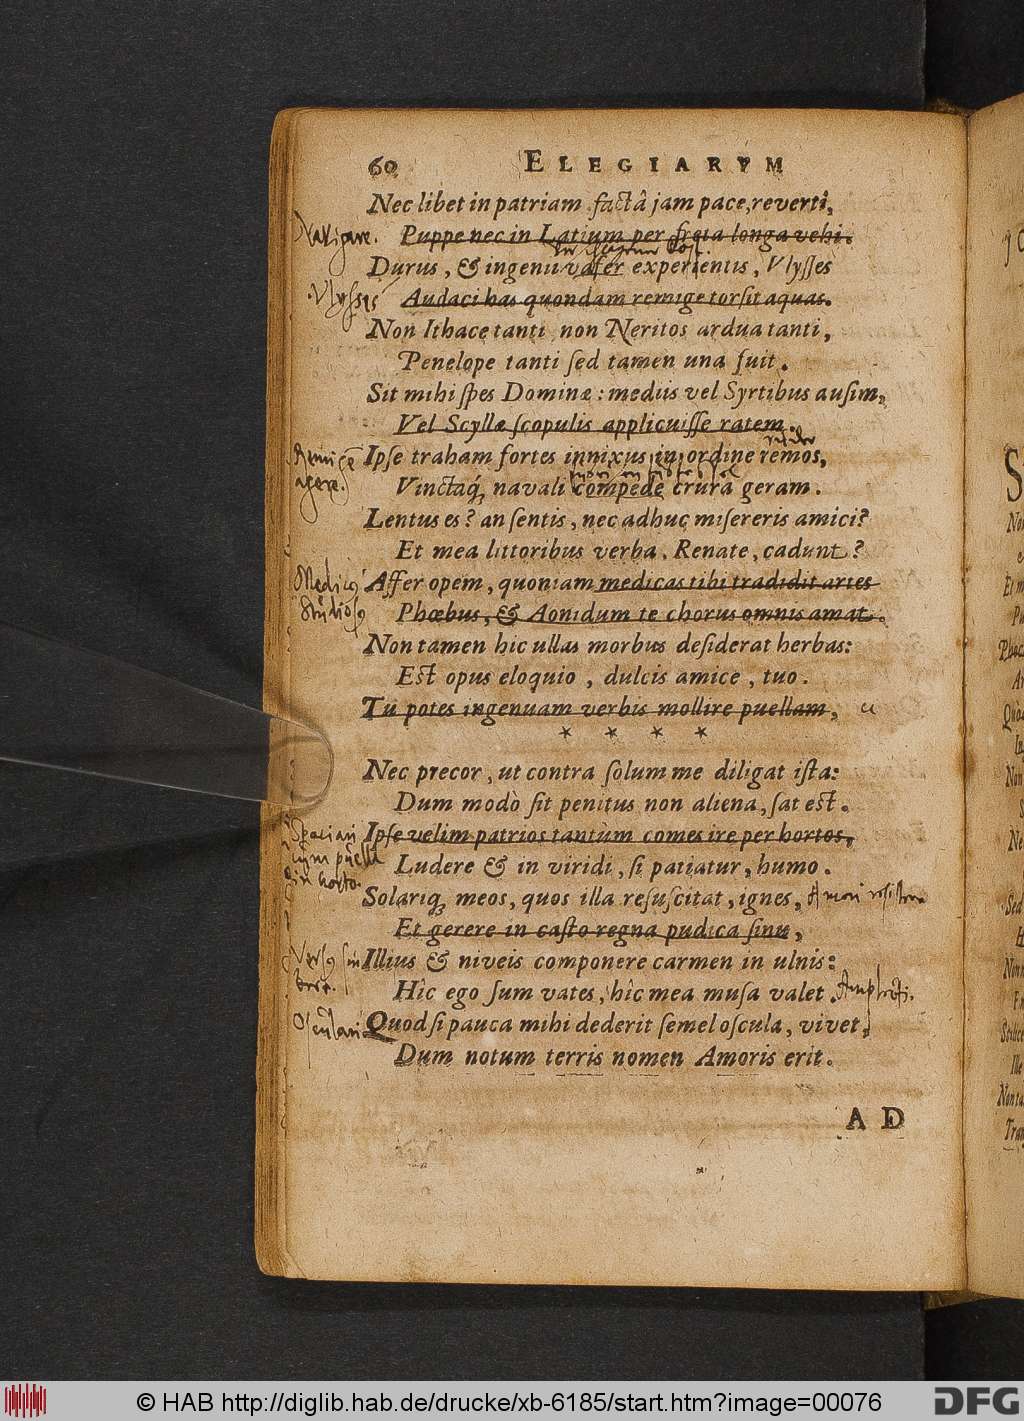 60 ELEGIARVM
Nec libet in patriam factâ jam pace, reverti,
Navigare. Puppe nec in Latium per freta longa vehi.
Durus, & ingenii vafer experientis, Vlysses
Vlysses Audaci has quondam remige torsit aquas.
Non Ithace tanti, non Neritos ardua tanti,
Penelope tanti sed tamen una fuit.
Sit mihi spes Dominæ: mediis vel Syrtibus ausim,
Vel Scyllæ scopulis applicuisse ratem.
Ipse traham fortes innixus in ordine remos,
agere. Vinctaq́; navali compede crura geram.
Lentus es? an sentis, nec adhuc misereris amici?
Et mea littoribus verba, Renate, cadunt?
Medicus Affer opem, quoniam medicas tibi tradidit artes
Studiosus Phœbus, & Aonidum te chorus omnis amat.
Non tamen hic ullas morbus desiderat herbas:
Est opus eloquio, dulcis amice, tuo.
Tu potes ingenuam verbis mollire puellam,
* * * *
Nec precor, ut contra solum me diligat ista:
Dum modò sit penitus non aliena, sat est.
Spaciari Ipse velim patrios tantùm comes ire per hortos,
cum puella Ludere & in viridi, si patiatur, humo.
in horto. Solariq; meos, quos illa resuscitat, ignes, Amori
Et gerere in casto regna pudica sinu,
Illius & niveis componere carmen in ulnis:
Hîc ego sum vates, hîc mea musa valet. Amplecti.
Osculari Quod si pauca mihi dederit semel oscula, vivet,
Dum notum terris nomen Amoris erit.
AD
© HAB http://diglib.hab.de/drucke/xb-6185/start.htm?image=00076
DFG